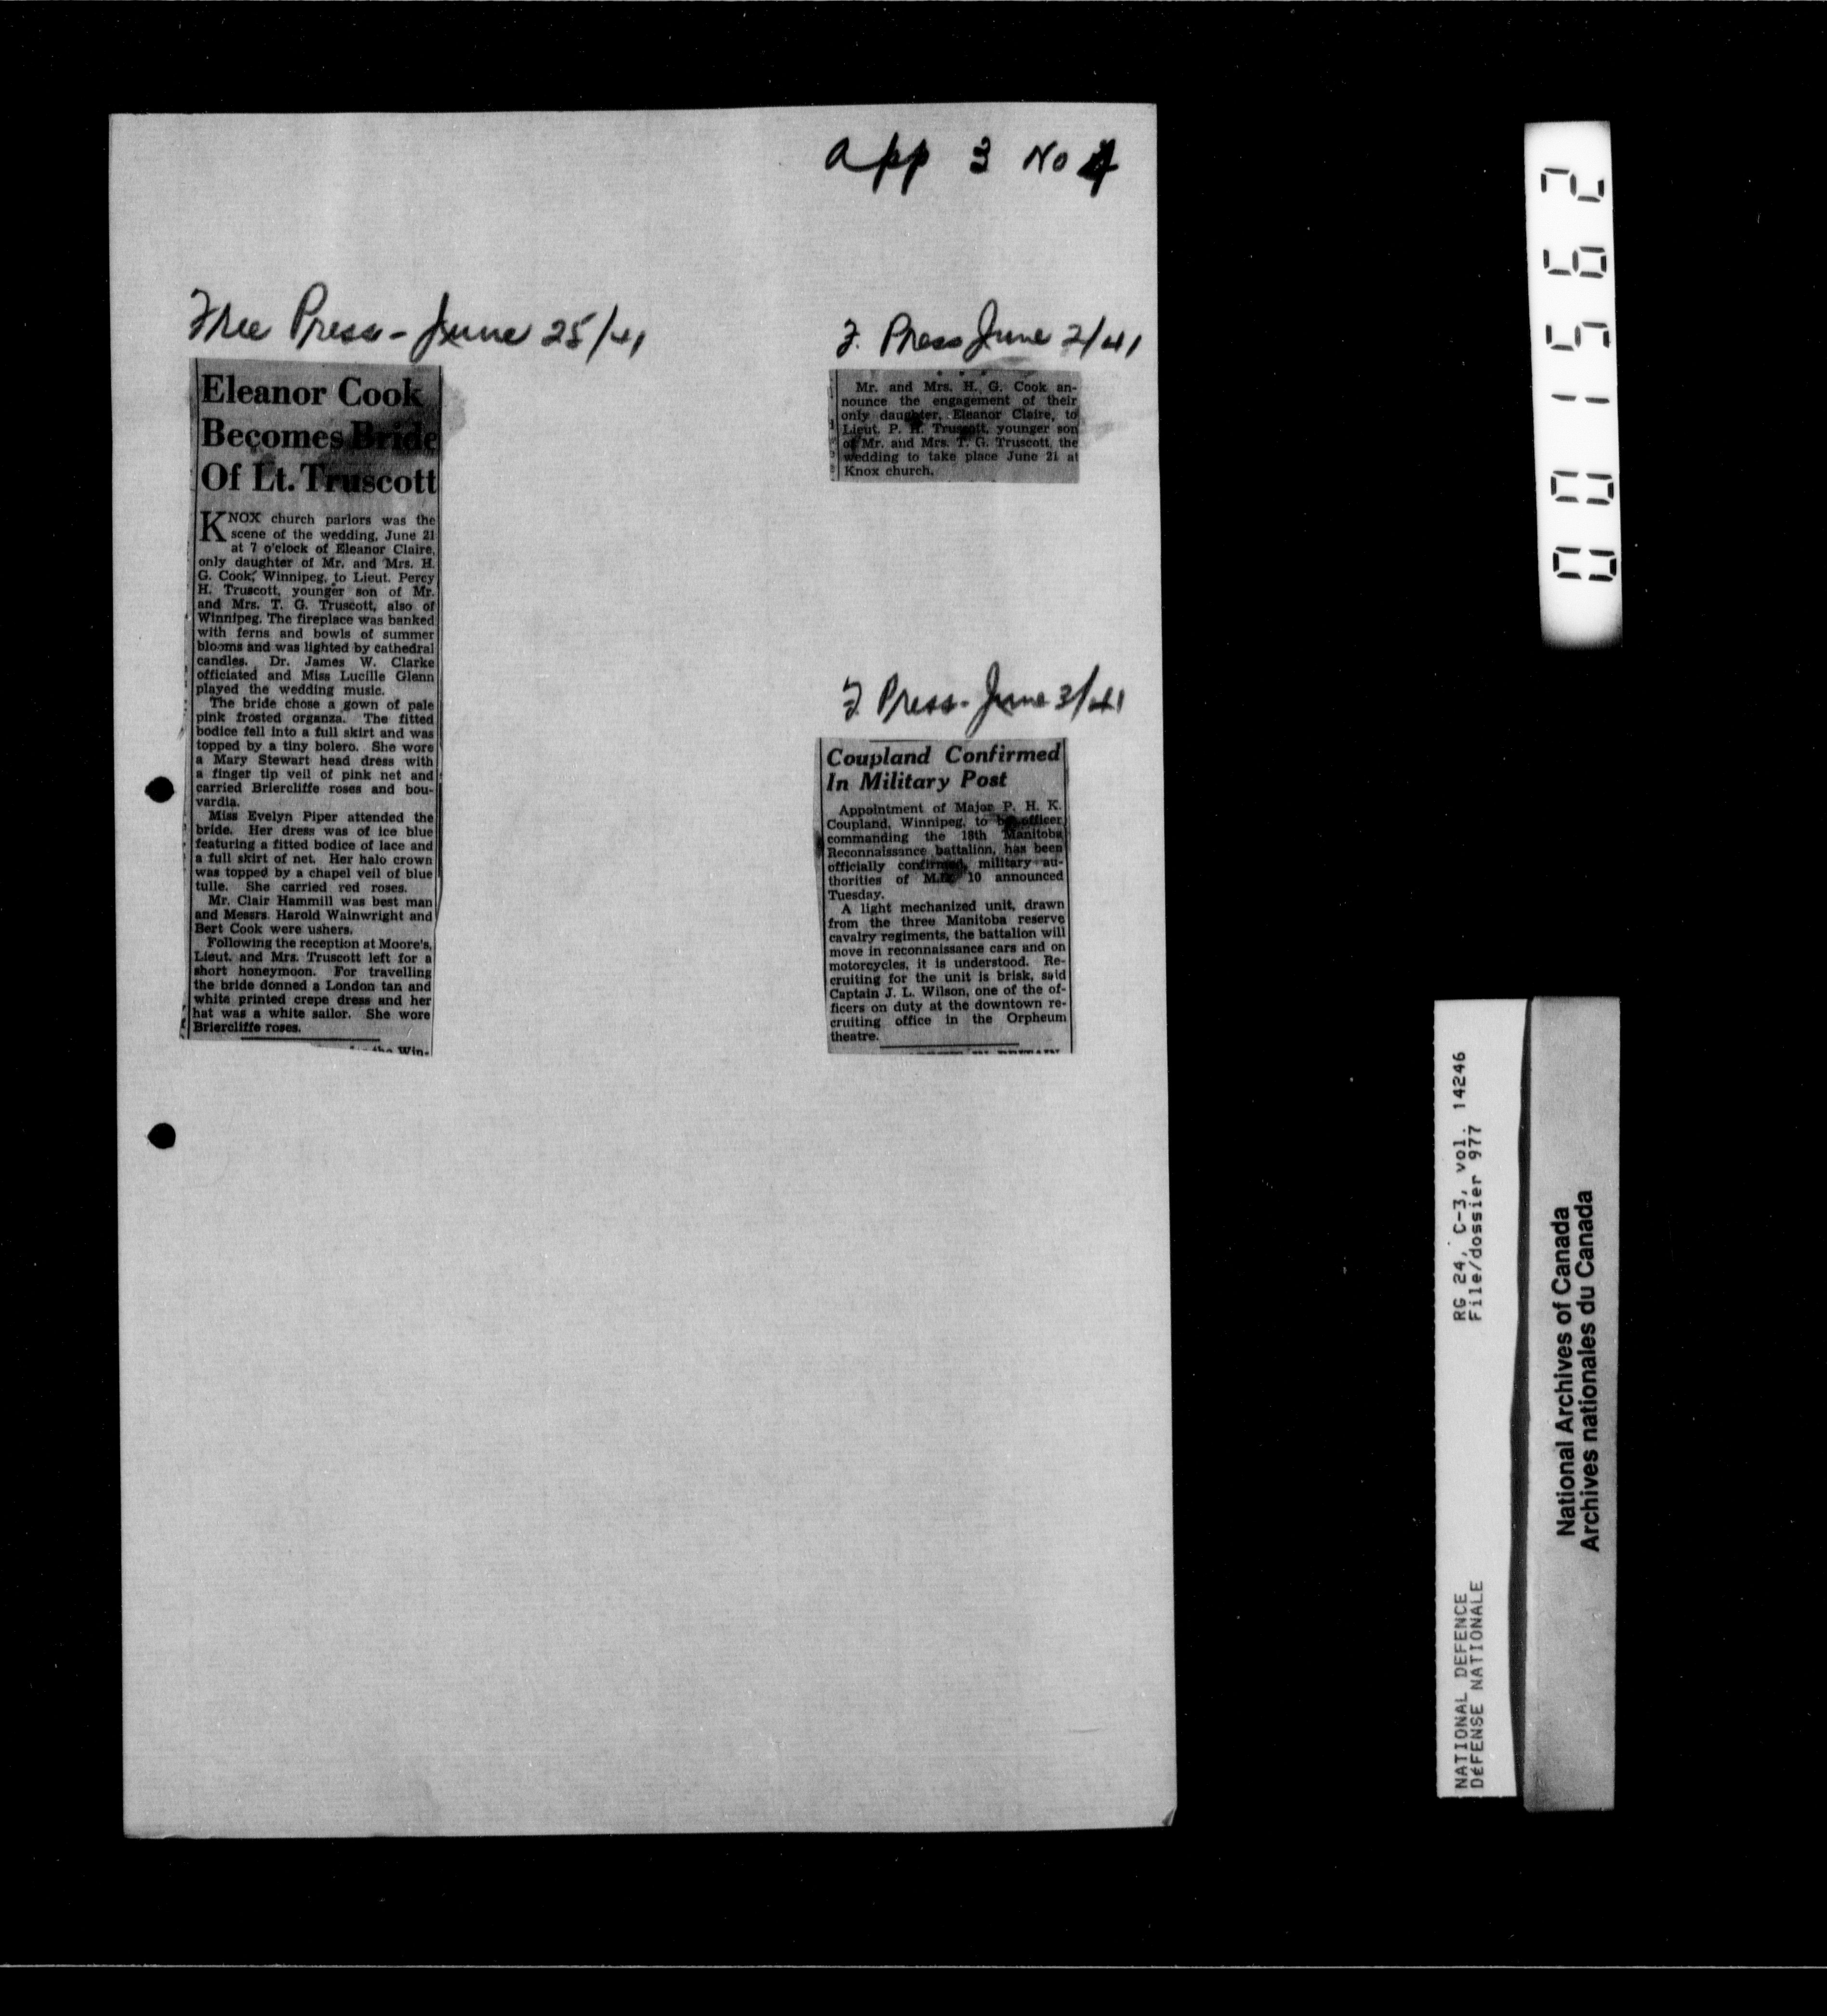 App 3 No 4
Free Press - June 25/41
Eleanor Cook
Becomes Bride
Of Lt. Truscott
KNOX church parlors was the
scene of the wedding, June 21
at 7 o'clock of Eleanor Claire,
only daughter of Mr. and Mrs. H.
G. Cook, Winnipeg, to Lieut. Percy
H. Truscott, younger son of Mr.
and Mrs. T. G. Truscott, also of
Winnipeg. The fireplace was banked
with ferns and bowls of summer
blooms and was lighted by cathedral
candles. Dr. James W. Clarke
officiated and Miss Lucille Glenn
played the wedding music.
The bride chose a gown of pale
pink frosted organza. The fitted
bodice fell into a full skirt and was
topped by a tiny bolero. She wore
a Mary Stewart head dress with
a finger tip veil of pink net and
carried Briercliffe roses and bou-
vardia.
Miss Evelyn Piper attended the
bride. Her dress was of ice blue
featuring a fitted bodice of lace and
a full skirt of net. Her halo crown
was topped by a chapel veil of blue
tulle. She carried red roses.
Mr. Clair Hammill was best man
and Messrs. Harold Wainwright and
Bert Cook were ushers.
Following the reception at Moore's,
Lieut. and Mrs. Truscott left for a
short honeymoon. For travelling
the bride donned a London tan and
white printed crepe dress and her
hat was a white sailor. She wore
Briercliffe roses.
the Win-
F. Press June 2/41
Mr. and Mrs. H. G. Cook an-
nounce the engagement of their
only daughter, Eleanor Claire, to
Lieut. P. H. Truscott, younger son
of Mr. and Mrs. T. G. Truscott, the
wedding to take place June 21 at
Knox church.
F. Press - June 3/41
Coupland Confirmed
In Military Post
Appointment of Major P. H. K.
Coupland, Winnipeg, to be officer
commanding the 18th Manitoba
Reconnaissance battalion, has been
officially confirmed, military au-
thorities of M.D. 10 announced
Tuesday.
A light mechanized unit, drawn
from the three Manitoba reserve
cavalry regiments, the battalion will
move in reconnaissance cars and on
motorcycles, it is understood. Re-
cruiting for the unit is brisk, said
Captain J. L. Wilson, one of the of-
ficers on duty at the downtown re-
cruiting office in the Orpheum
theatre.
IN BRITAIN
001562
NATIONAL DEFENCE RG 24, C-3, vol. 14246
DÉFENSE NATIONALE File/dossier 977
National Archives of Canada
Archives nationales du Canada